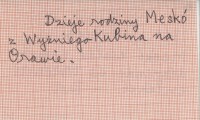 Dzieje rodziny Meskó
z Wyżniego Kubina na
Orawie.